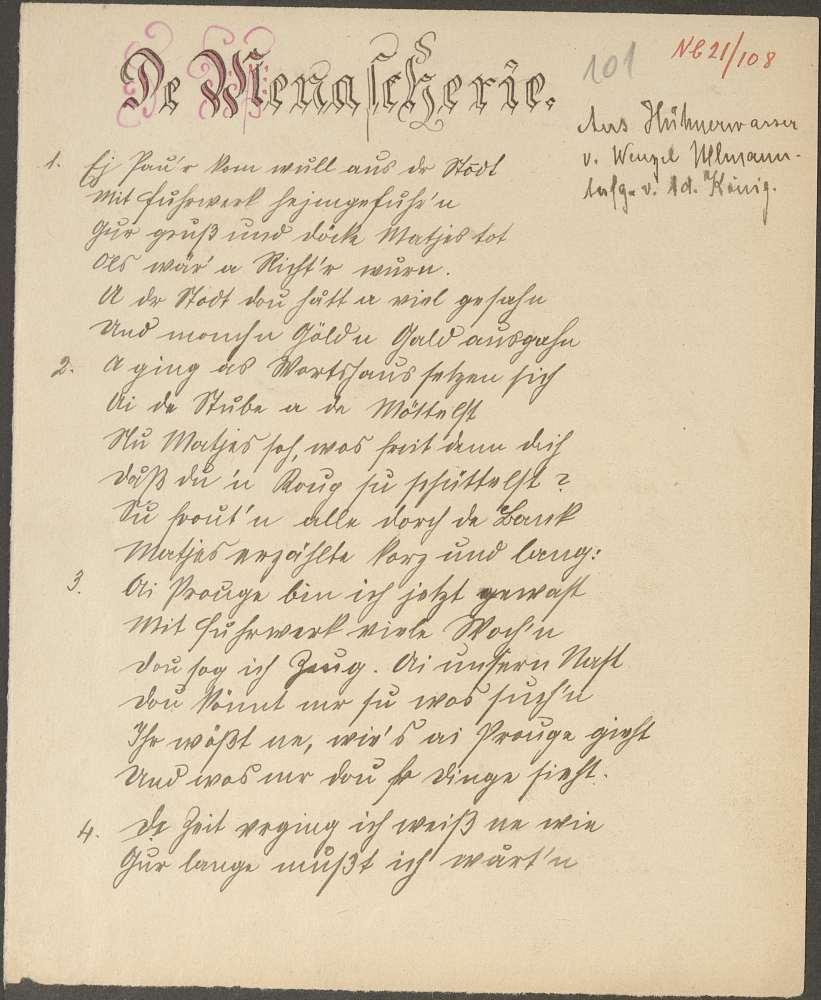 De Menascherie.
101
NB 21/108
Aus Hühnerwasser
v. Wenzel Ullmann.
Aufg. v. Ad. König.
1. Ej Pau'r kom wull aus dr Stodt
Mit Fuhrwerk hejmgefuhr'n
Gur gruß und döcke Matjes tot
Ols wär' a Richt'r wurn.
A dr Stodt dou hått a viel gesahn
Und monchn Göldn Gald ausgahn
2. A ging as Wortshaus setzen sich
Ai de Stube a de Möttelst
Nu Matjes soh, wos freit denn dich
Dåß du 'n Koup su schüttelst?
Su frout'n alle dorch de Bank
Matjes erzåhlte korz und lang:
3. Ai Prouge bin ich jetzt gewast
Mit Fuhrwerk viele Woch'n
Dou sog ich Zeug. Ai unsern Nast
Dou könnt mr su wos such'n
Ihr wößt ne, wie's ai Prouge gieht
Und wos mr dou fr Dinge sieht.
4. De Zeit verging ich weiß ne wie
Gur lange mußt ich wårt'n